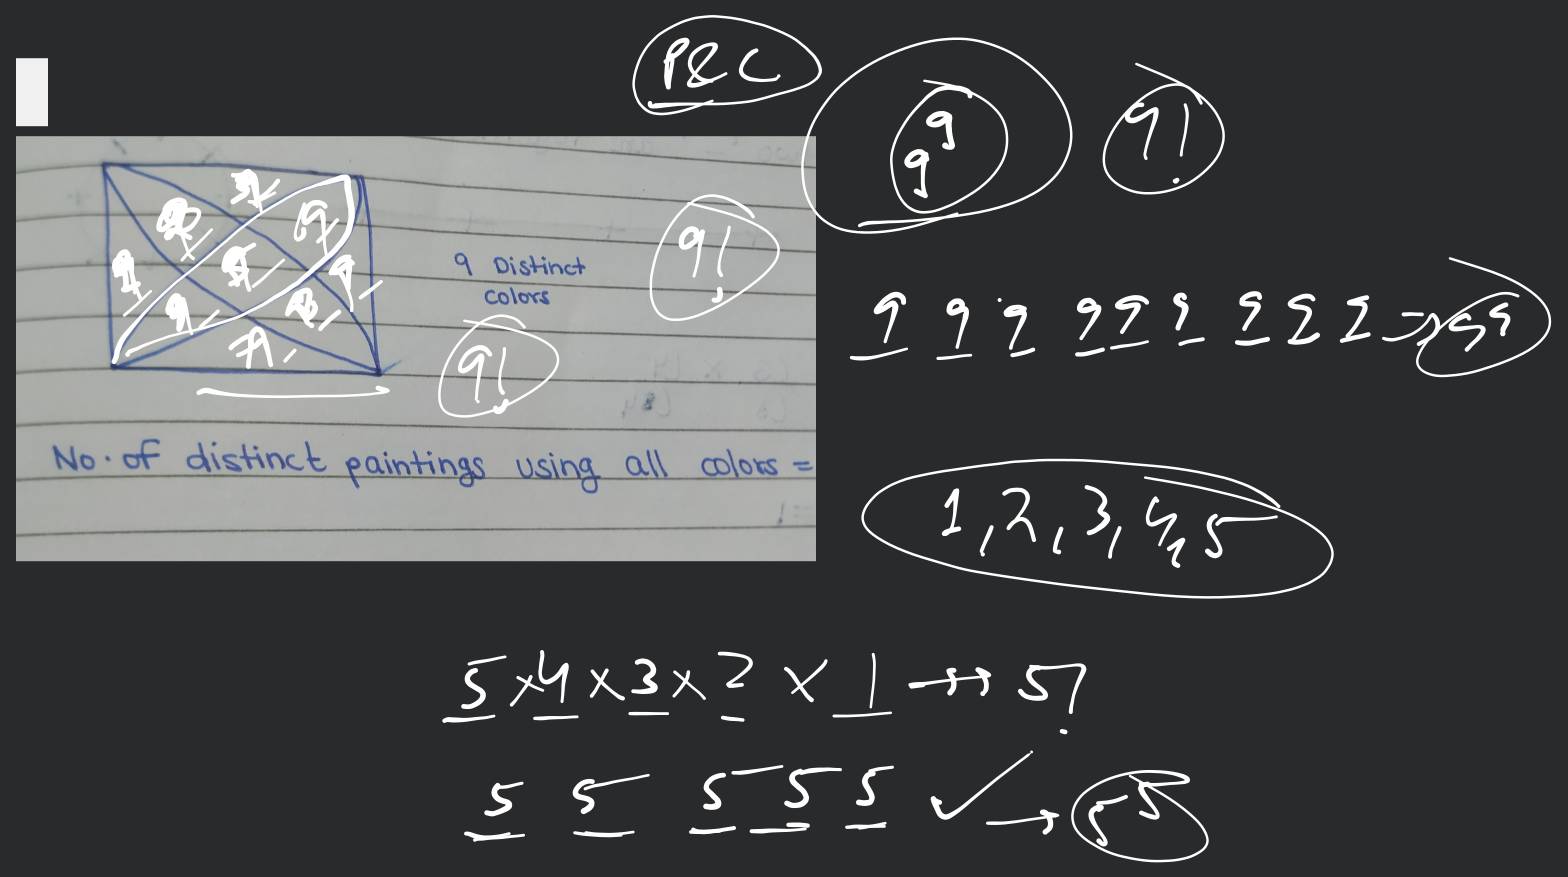 P&C
9^9
9!
9!
9 Distinct
colors
9!
9 9 9 9 9 9 9 9 9 => 9^9
No. of distinct paintings using all colors =
1, 2, 3, 4, 5
5 x 4 x 3 x 2 x 1 → 5!
5 5 5 5 5 ✓ → 5^5